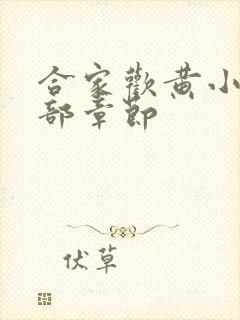 合家歡黄小
部章節
伏草